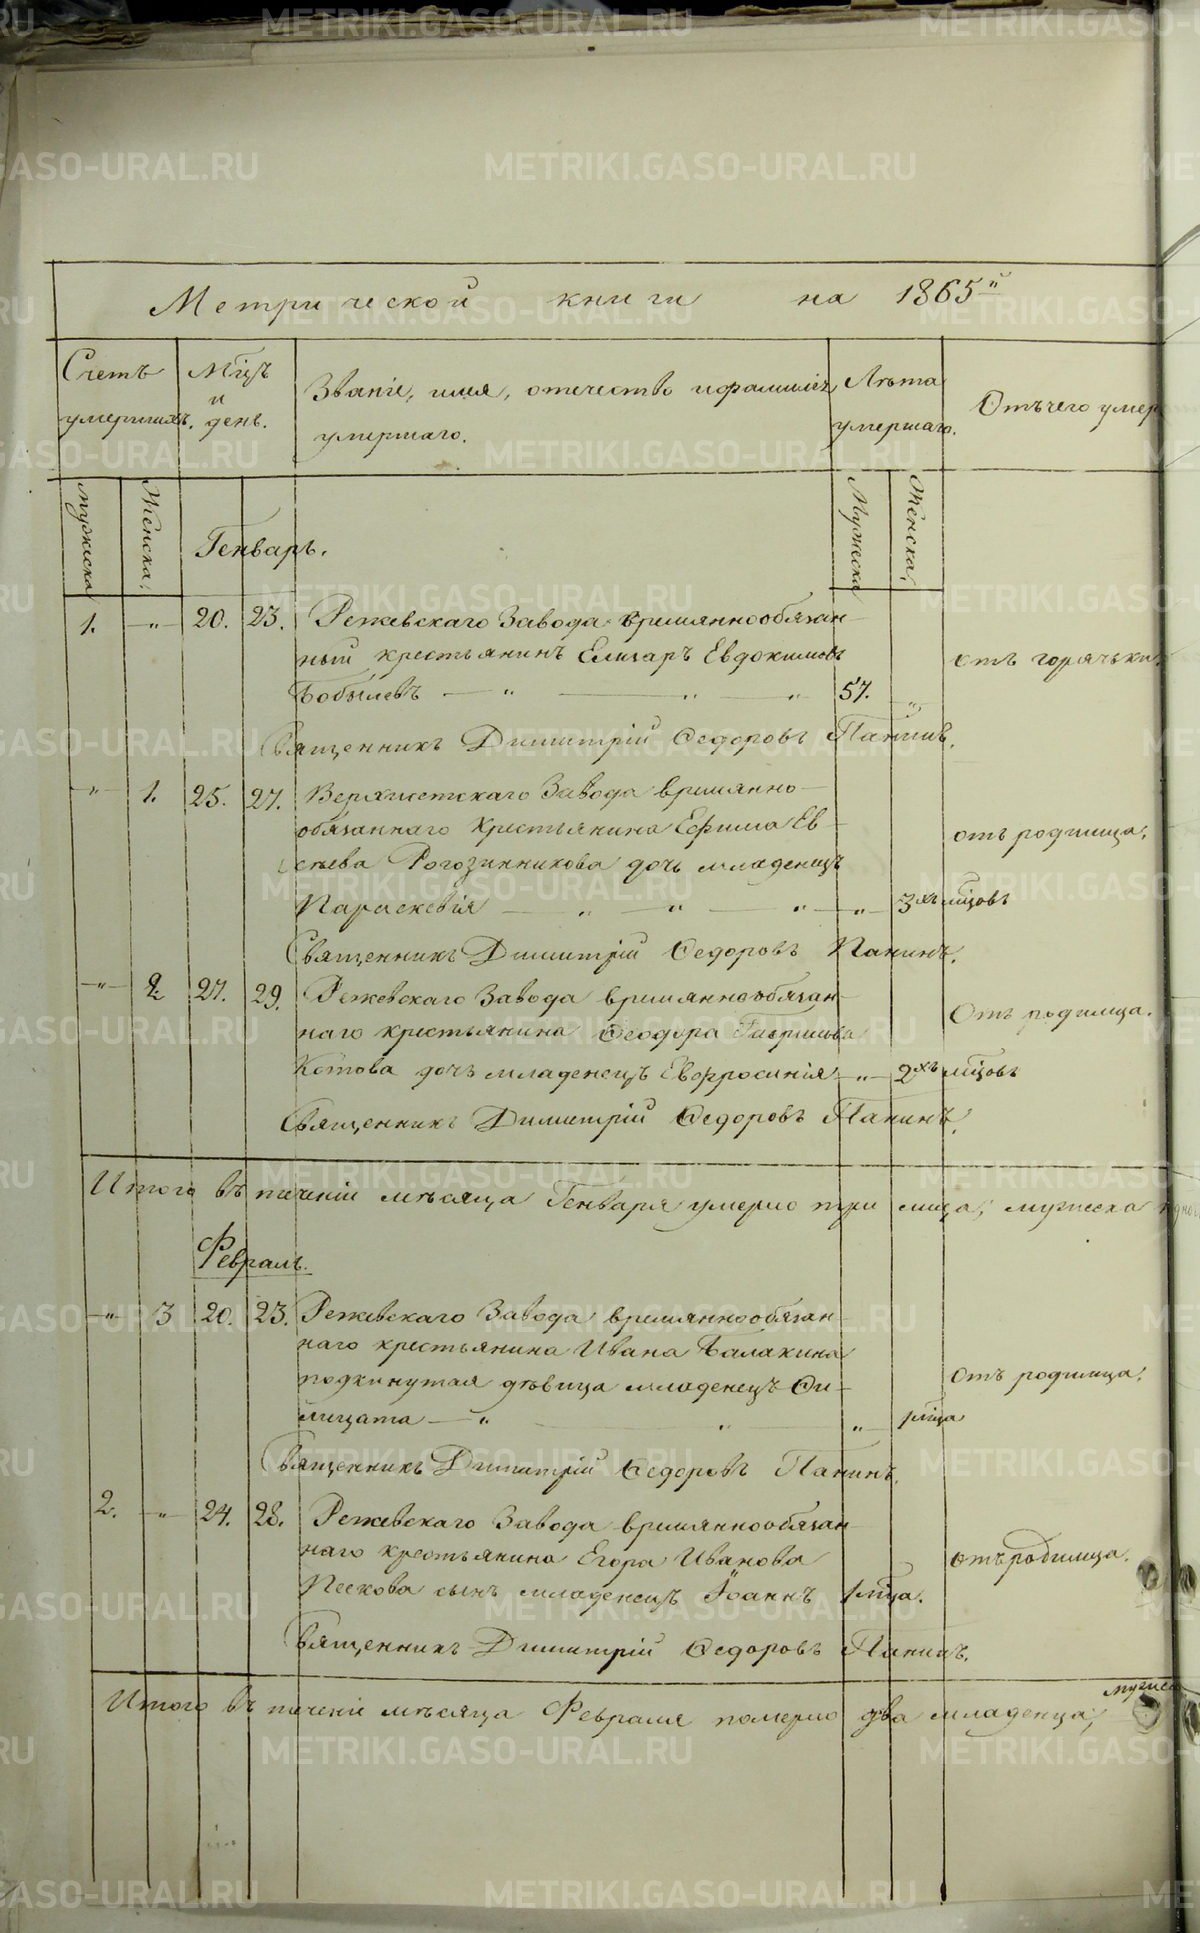 Метрической книги на 1865й
Счетъ умершихъ.
Мцъ и день.
Званіе, имя, отечество и фамилія умершаго.
Лѣта умершаго.
Отъ чего умер
Мужеска
Женска.
Генварь.
Мужеска
Женска.
1. — " — 20. 23. Режевскаго Завода временнообязан-
ный крестьянинъ Елизаръ Евдокимовъ
Бобылевъ — " — " — " — 57. "
отъ горячьки
Священникъ Димитрій Ѳедоровъ Панинъ.
— " — 1. 25. 27. Верхисетскаго Завода временно-
обязаннаго крестьянина Ефима Ев-
сѣева Рогозинникова дочь младенецъ
Параскевія — " — " — " — " — 3хъ мцовъ
отъ родимца.
Священникъ Димитрій Ѳедоровъ Панинъ.
— " — 2. 27. 29. Режевскаго Завода временнообязан-
наго крестьянина Ѳеодора Гаврилова
Котова дочь младенецъ Евфросинія — " — 2хъ мцовъ
Отъ родимца.
Священникъ Димитрій Ѳедоровъ Панинъ.
Итого въ теченіи мѣсяца Генваря умерло три лица; мужеска
Февраль.
— " — 3 20. 23. Режевскаго Завода временнообязан-
наго крестьянина Ивана Балакина
подкинутая дѣвица младенецъ Ѳи-
лицата — " — " " — 1 мца
отъ родимца.
Священникъ Димитрій Ѳедоровъ Панинъ.
2. — " — 24. 28. Режевскаго Завода временнообязан-
наго крестьянина Егора Иванова
Пескова сынъ младенецъ Іоаннъ 1 мца.
отъ родимца.
Священникъ Димитрій Ѳедоровъ Панинъ.
Итого въ теченіе мѣсяца Февраля померло два младенца;
METRIKI.GASO-URAL.RU